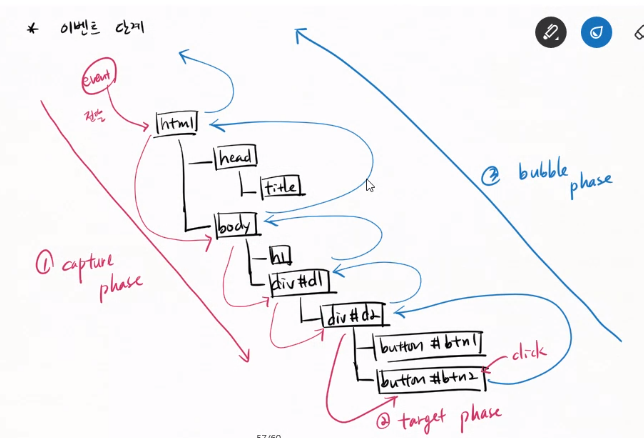 * 이벤트 단계
event
전달
html
head
title
body
h1
div#d1
div#d2
button #btn1
button #btn2
click
① capture
phase
② target phase
③ bubble
phase
57/60